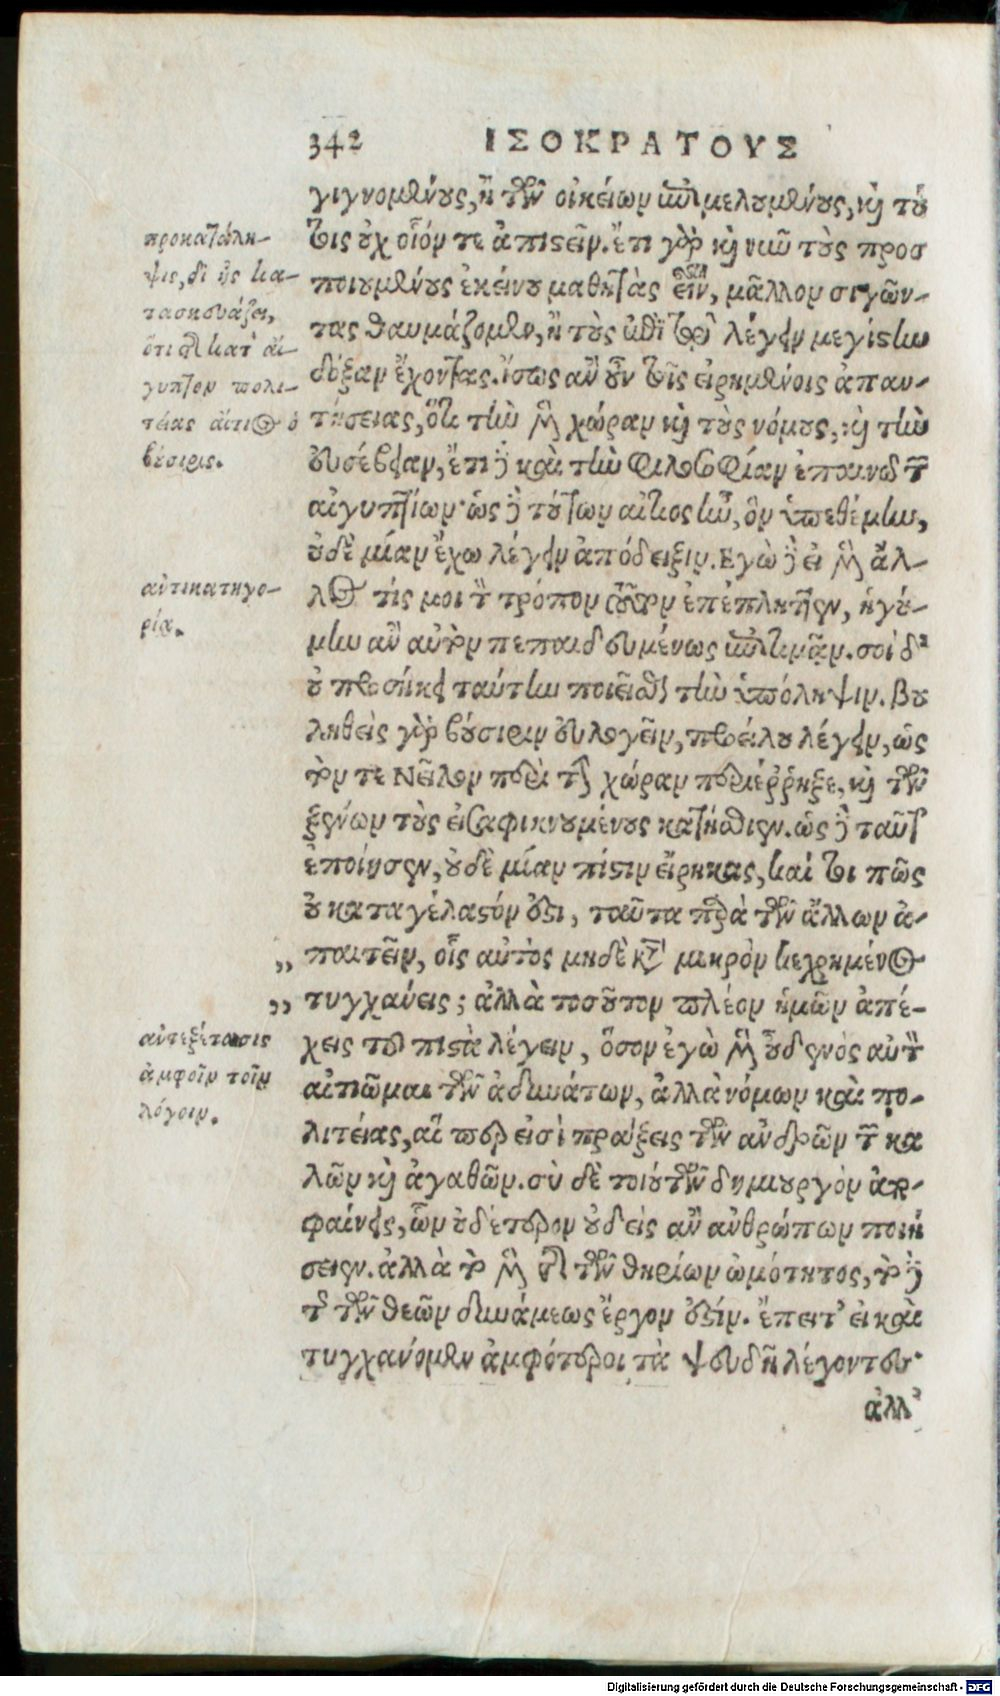 342 ΙΣΟΚΡΑΤΟΥΣ
γιγνομένους, ἢ τῶν οἰκείων ἐπιμελουμένους, καὶ τού
τοις οὐχ οἷόν τε ἀπιστεῖν. ἔτι γὰρ καὶ νῦν τοὺς προσ
ποιουμένους ἐκείνου μαθητὰς εἶναι, μᾶλλον σιγῶν-
τας θαυμάζομεν, ἢ τοὺς ἐπὶ τῷ λέγειν μεγίστην
δόξαν ἔχοντας. ἴσως ἂν οὖν τοῖς εἰρημένοις ἀπαν-
τήσειας, ὅτι τὴν μὲν χώραν καὶ τοὺς νόμους, καὶ τὴν
εὐσέβειαν, ἔτι δὲ καὶ τὴν φιλοσοφίαν ἐπαινεῖς τῶν
αἰγυπτίων· ὡς δὲ τούτων αἴτιος ἦν, ὃν ὑπεθέμην,
οὐδὲ μίαν ἔχω λέγειν ἀπόδειξιν. Εγὼ δὲ εἰ μὲν ἄλ-
λος τίς μοι τὸν τρόπον τοῦτον ἐπέπληττεν, ἡγού-
μην ἂν αὐτὸν πεπαιδευμένως ἐπιτιμᾶν. σοὶ δ'
οὐ προσήκει ταύτην ποιεῖσθαι τὴν ὑπόληψιν. βου
ληθεὶς γὰρ βούσιριν εὐλογεῖν, προείλου λέγειν, ὡς
τόν τε Νεῖλον περὶ τὴν χώραν περιέῤῥηξε, καὶ τῶν
ξένων τοὺς εἰσαφικνουμένους κατήσθιεν. ὡς δὲ ταῦτ'
ἐποίησεν, οὐδὲ μίαν πίστιν εἴρηκας, καί τοι πῶς
οὐ καταγέλαστόν ἐστι, ταῦτα παρὰ τῶν ἄλλων ἀ-
„ παιτεῖν, οἷς αὐτὸς μηδὲ κατὰ μικρὸν κεχρημένος
„ τυγχάνεις; ἀλλὰ τοσοῦτον πλέον ἡμῶν ἀπέ-
χεις τοῦ πιστὰ λέγειν, ὅσον ἐγὼ μὲν οὐδενὸς αὐτὸν
αἰτιῶμαι τῶν ἀδυνάτων, ἀλλὰ νόμων καὶ πο-
λιτείας, αἵ περ εἰσὶ πράξεις τῶν ἀνδρῶν τῶν κα
λῶν καὶ ἀγαθῶν. σὺ δὲ τοιούτων δημιουργὸν ἀπ-
φαίνεις, ὧν οὐδέτερον οὐδεὶς ἂν ἀνθρώπων ποιή
σειεν. ἀλλὰ τὸ μὲν τῆς τῶν θηρίων ὠμότητος, τὸ δὲ
τῆς τῶν θεῶν δυνάμεως ἔργον ἐστίν. ἔπειτ' εἰ καὶ
τυγχάνομεν ἀμφότεροι τὰ ψευδῆ λέγοντες·
ἀλλ'
προκατάλη-
ψις, δι' ἧς κα-
τασκευάζει,
ὅτι τῆς κατ' αἴ-
γυπτον πολι-
τείας αἴτιος ὁ
βούσιρις.
ἀντικατηγο-
ρία.
ἀντεξέτασις
ἀμφοῖν τοῖν
λόγοιν.
Digitalisierung gefördert durch die Deutsche Forschungsgemeinschaft - DFG